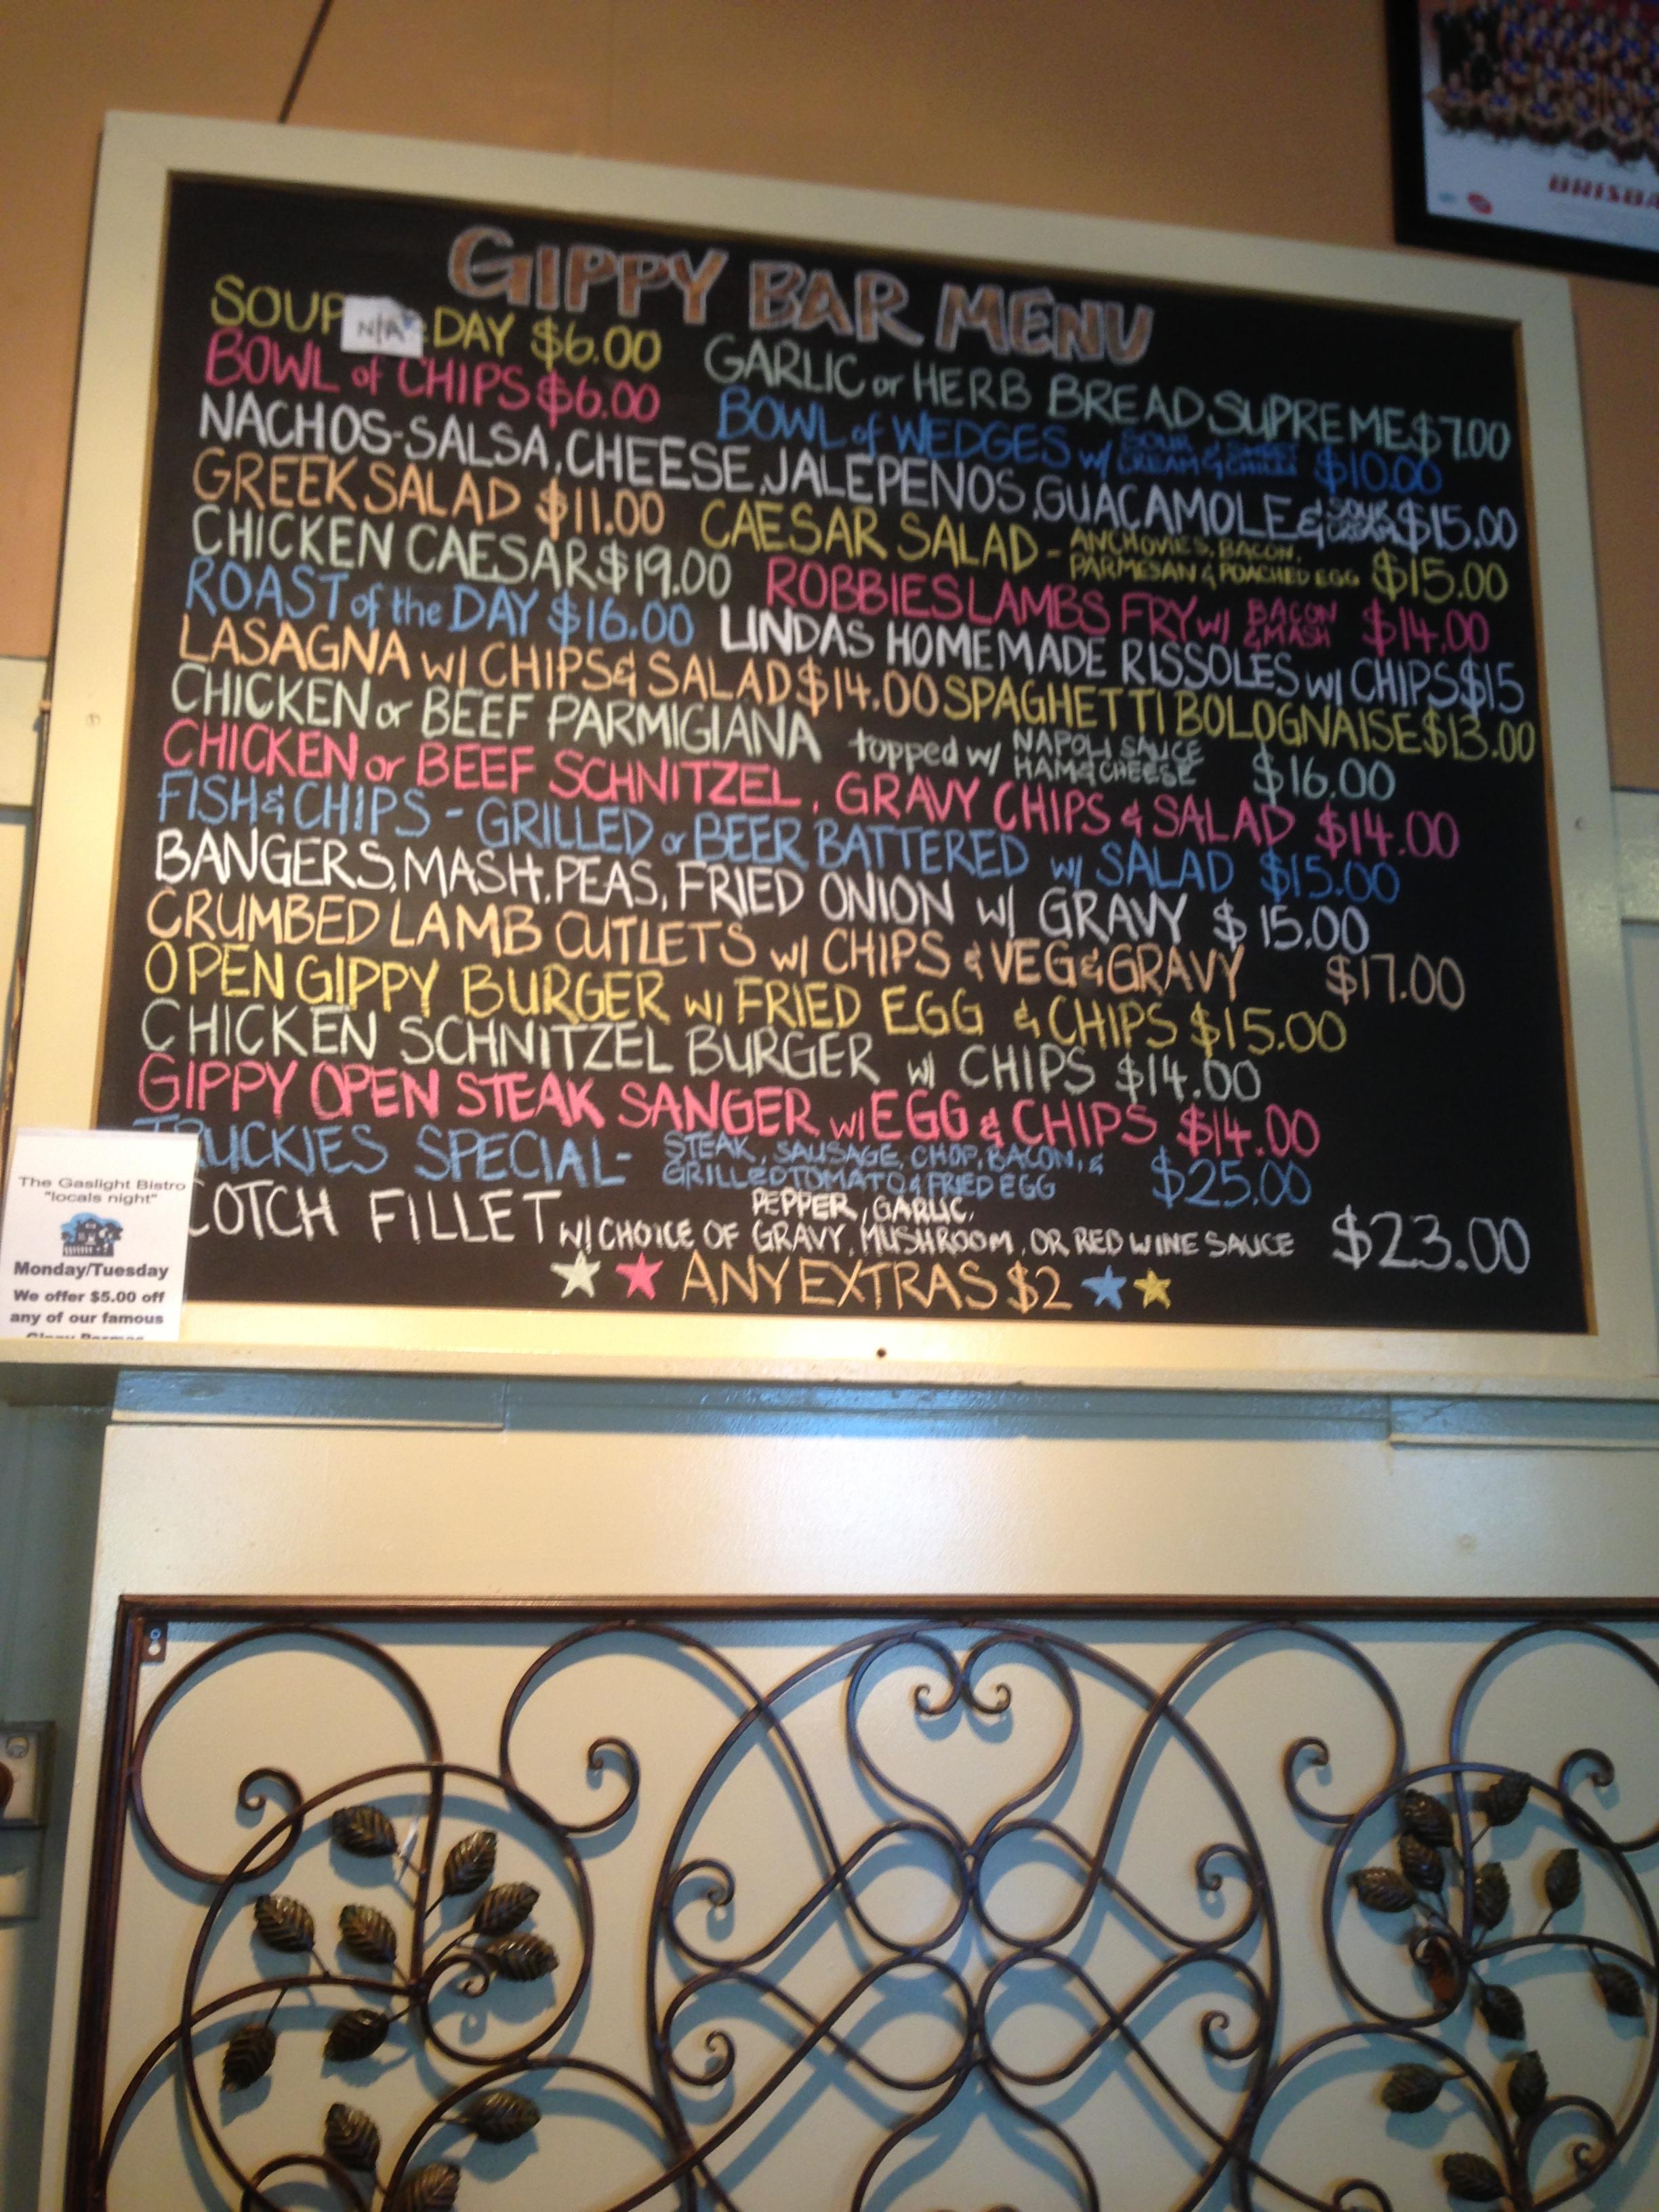 BRISBA
GIPPY BAR MENU
SOUP N/A DAY $6.00
GARLIC or HERB BREAD SUPREME $7.00
BOWL of CHIPS $6.00
BOWL of WEDGES w/ SOUR CREAM & SWEET CHILLI $10.00
NACHOS-SALSA, CHEESE, JALEPENOS, GUACAMOLE & SOUR CREAM $15.00
GREEK SALAD $11.00
CAESAR SALAD - ANCHOVIES, BACON, PARMESAN & POACHED EGG $15.00
CHICKEN CAESAR $19.00
ROBBIES LAMBS FRY w/ BACON & MASH $14.00
ROAST of the DAY $16.00
LINDAS HOMEMADE RISSOLES w/ CHIPS $15
LASAGNA w/ CHIPS & SALAD $14.00
SPAGHETTI BOLOGNAISE $13.00
CHICKEN or BEEF PARMIGIANA topped w/ NAPOLI SAUCE HAM & CHEESE $16.00
CHICKEN or BEEF SCHNITZEL, GRAVY CHIPS & SALAD $14.00
FISH & CHIPS - GRILLED or BEER BATTERED w/ SALAD $15.00
BANGERS, MASH, PEAS, FRIED ONION w/ GRAVY $15.00
CRUMBED LAMB CUTLETS w/ CHIPS & VEG & GRAVY $17.00
OPEN GIPPY BURGER w/ FRIED EGG & CHIPS $15.00
CHICKEN SCHNITZEL BURGER w/ CHIPS $14.00
GIPPY OPEN STEAK SANGER w/ EGG & CHIPS $14.00
TRUCKIES SPECIAL- STEAK, SAUSAGE, CHOP, BACON, & GRILLED TOMATO & FRIED EGG $25.00
COTCH FILLET w/ CHOICE OF PEPPER, GARLIC, GRAVY, MUSHROOM, OR RED WINE SAUCE $23.00
ANY EXTRAS $2
The Gaslight Bistro
"locals night"
Monday/Tuesday
We offer $5.00 off
any of our famous